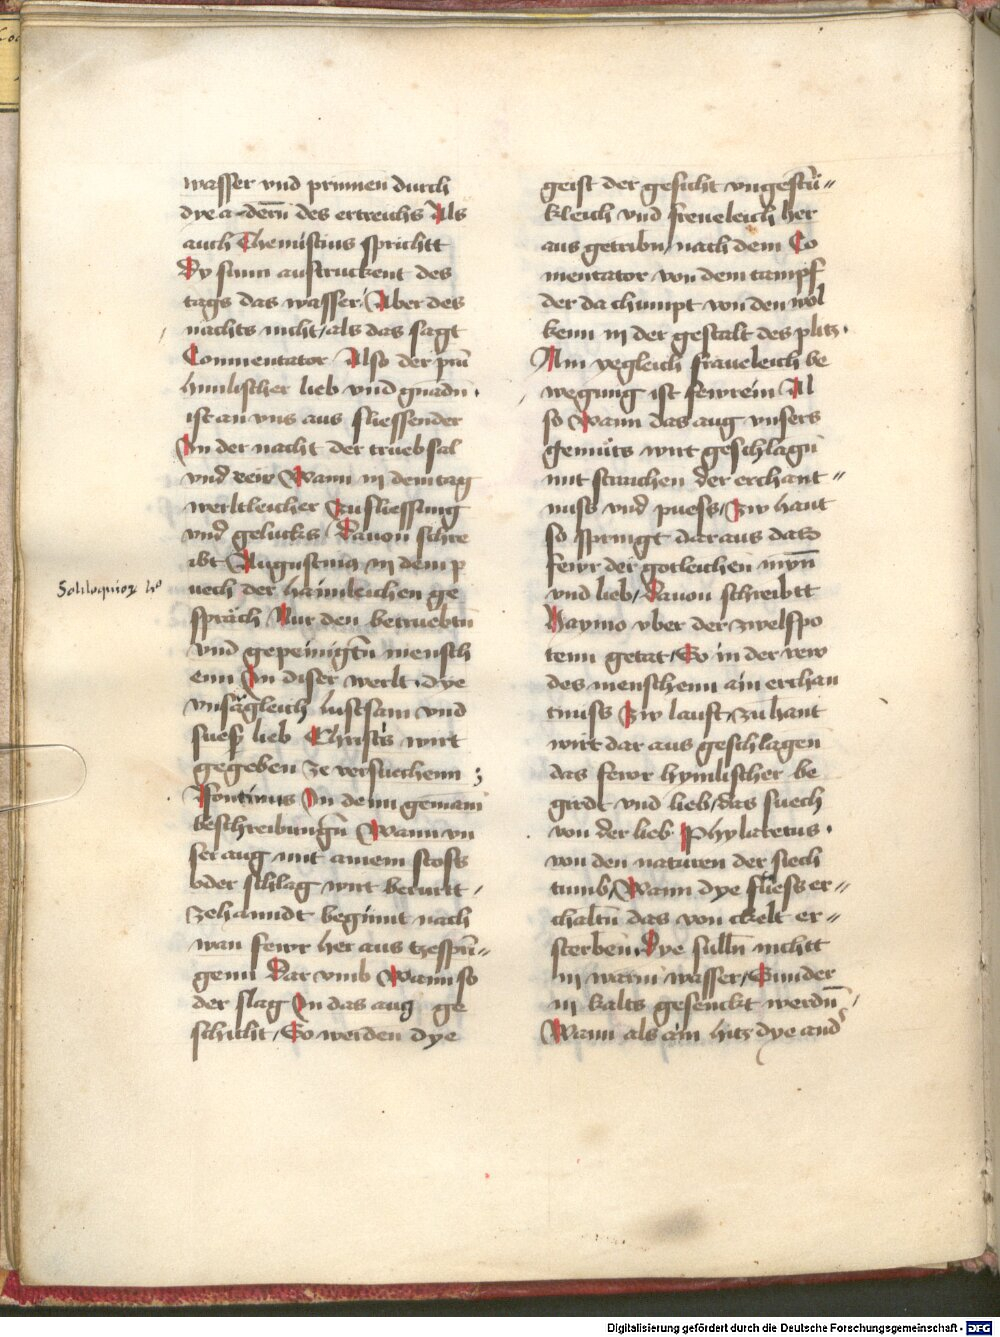 wasser vnd prunnen durch
dye a-dern̄ des ertreichs Als
auch Themistius sprichtt
Dy sunn austruckent des
tags das wasser Aber des
nachts nicht als das sagt
Commentator Also der prūn
himlischer lieb vnd gnadn̄
ist an vns aus fliessender
In der nacht der truebsal
vnd rew Wann in dem tag
werltleicher Zufliessung
vnd gelucks Dauon schre
ibt Augustinus in dem p
uech der haimleichen ge
spräch Nur den betruebtn̄
vnd gepeinigtn̄ mensch
enn In diser werlt dye
vnsägleich lustsam vnd
suess lieb Christs wirt
gegeben ze versuechenn
Fontinus In denn gemain
beschreibungn̄ Wann vn
ser aug mit ainem stoss
oder schlag wirt berurtt
zehanndt begunnt nach
wan fewr her aus tzesprīn
genn Dar vmb Wann so
der slag In das aug ge
schicht So werden dye
Soliloquiorum
geist der gesicht vngestū
kleich vnd freueleich her
aus getribn̄ nach dem Co
mentator von dem tampf
der da chumpt von den wol
kenn in der gestalt des plitz
Ain yegleich fräueleich be
wegung ist fewrein Al
so Wann das aug vnsers
gemüts wirt geschlagn̄
mit strauchen der erchant
nuss vnd puess Zw hant
so springt dar aus datz
fewr der gotleichen myn̄
vnd lieb Dauon schreibtt
Haymo vber der zwelfpo
tenn getat So in der rew
des menschenn ain erchan
tnuss Zw lauft zu hant
wirt dar aus geschlagen
das fewr hymlischer be
gird vnd lieb das suech
von der lieb Phylaretus
von den naturen der siech
tumb Wann dye fliess er
chaltn̄ das von chelt er
sterben Dye sulln̄ nichtt
in warm wasser Sunder
in kalts gesenckt werdn̄
Wann als ain hitz dye and